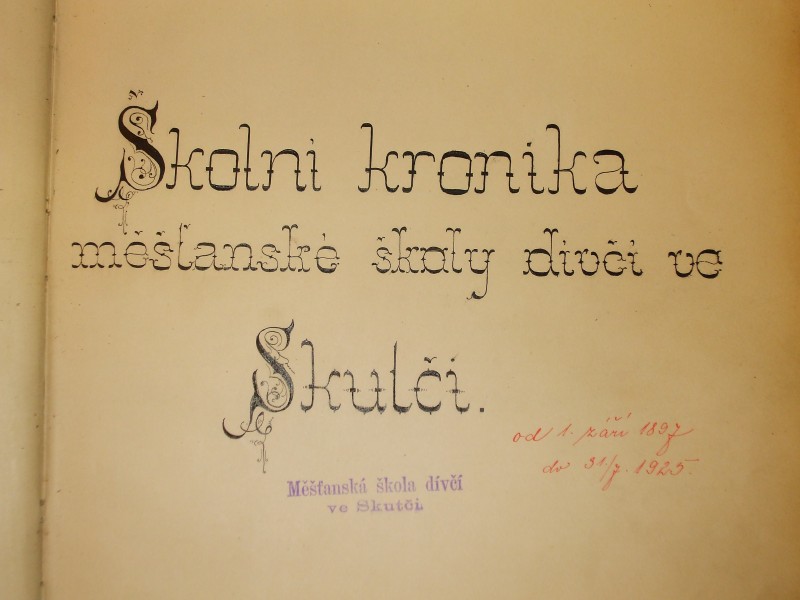 Školní kronika
měšťanské školy dívčí ve
Skutči.
od 1. září 1897
do 31/7. 1925.
Měšťanská škola dívčí
ve Skutči.